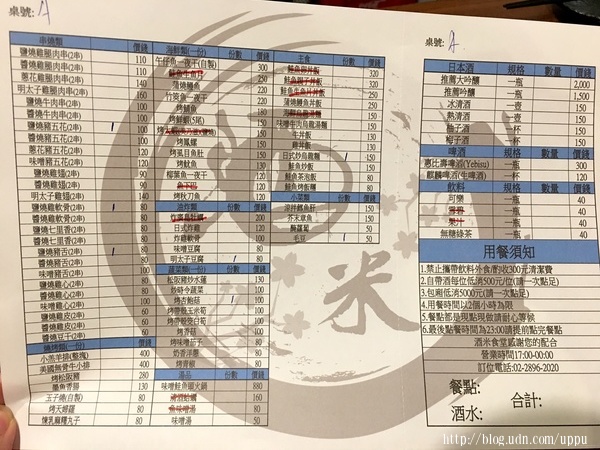 桌號: A
串燒類 價錢
鹽燒雞腿肉串(2串) 110
醬燒雞腿肉串(2串) 110
蔥花雞腿肉串(2串) 110
明太子雞腿肉串(2串)
鹽燒牛肉串(2串)
醬燒牛肉串(2串)
鹽燒豬五花(2串)
醬燒豬五花(2串)
蔥花豬五花(2串)
味噌豬五花(2串)
鹽燒雞翅(2串)
醬燒雞翅(2串) 90
明太子雞翅(2串)
鹽燒雞軟骨(2串) 80
醬燒雞軟骨(2串) 80
鹽燒七里香(2串) 80
醬燒七里香(2串) 80
鹽燒豬舌(2串)
醬燒豬舌(2串)
鹽燒雞心(2串)
味噌雞心(2串)
醬燒雞心(2串)
鹽燒雞皮(2串)
醬燒雞皮(2串)
醬燒豆干(2串)
燒烤類(一份) 價錢
小羔羊排(整塊) 400
美國無骨牛小排 400
烤松阪豬 280
墨魚香腸 130
玉子燒(自製) 80
烤天婦羅 80
煉乳麻糬丸子 80
海鮮類(一份) 份數 價錢
午仔魚一夜干(自製) 300
蒲燒鰻魚
竹莢魚一夜干
烤鯖魚
烤鮮蝦(5尾)
烤鳳螺
烤虱目魚肚
烤魷魚
柳葉魚一夜干
魚下巴
烤秋刀魚
炸物類 份數 價錢
炸廣島牡蠣 200
日式炸雞
炸雞軟骨
味噌豆腐
明太子豆腐 80
蔬菜類(一份) 份數 價錢
松阪豬炒水蓮 130
炒時令蔬菜 100
烤杏鮑菇 100
烤帶殼玉米筍 100
烤帶殼茭白筍 100
烤香菇
烤味噌茄子 80
奶香洋蔥 80
烤青椒 80
湯品 份數 價錢
味噌鮭魚圓火鍋 880
清酒蛤蠣 160
魚味噌湯
味噌湯 50
主食 份數 價錢
鮭魚卵丼飯 320
鮭魚親子丼飯 320
鮭魚生魚丼飯 250
蒲燒鰻魚丼飯 250
味噌牛肉烏龍湯麵 150
牛丼飯 130
雞丼飯 130
日式炒烏龍麵
鮭魚炒飯 130
鮭魚茶泡飯 80
鮭魚烤飯糰 80
小菜類 份數 價錢
涼拌鱈魚肝 150
芥末章魚
醃蘿蔔 50
毛豆 50
桌號: A
日本酒 規格 數量 價錢
推薦大吟釀 一瓶 2,000
推薦吟釀 一瓶 1,500
冰清酒 一壺
熱清酒 一壺
柚子酒 一杯 150
梅子酒 一杯 150
啤酒 規格 數量 價錢
惠比壽啤酒(Yebisu) 一瓶 300
麒麟啤酒(生啤酒) 一杯 120
飲料 規格 數量 價錢
可樂 一瓶 40
雪碧 一瓶 40
果汁 一瓶 40
無糖綠茶 一瓶 40
用餐須知
1.禁止攜帶飲料外食/酌收300元清潔費
2.自帶酒每位低消500元/位(請一次點足)
3.包廂低消5000元(請一次點足)
4.用餐時間以2個小時為限
5.餐點都是現點現做請耐心等候
6.最後點餐時間為23:00請提前點完餐點
酒米食堂感謝您的配合
營業時間17:00-00:00
訂位電話:02-2896-2020
餐點:
酒水: 合計:
酒米
http://blog.udn.com/uppu